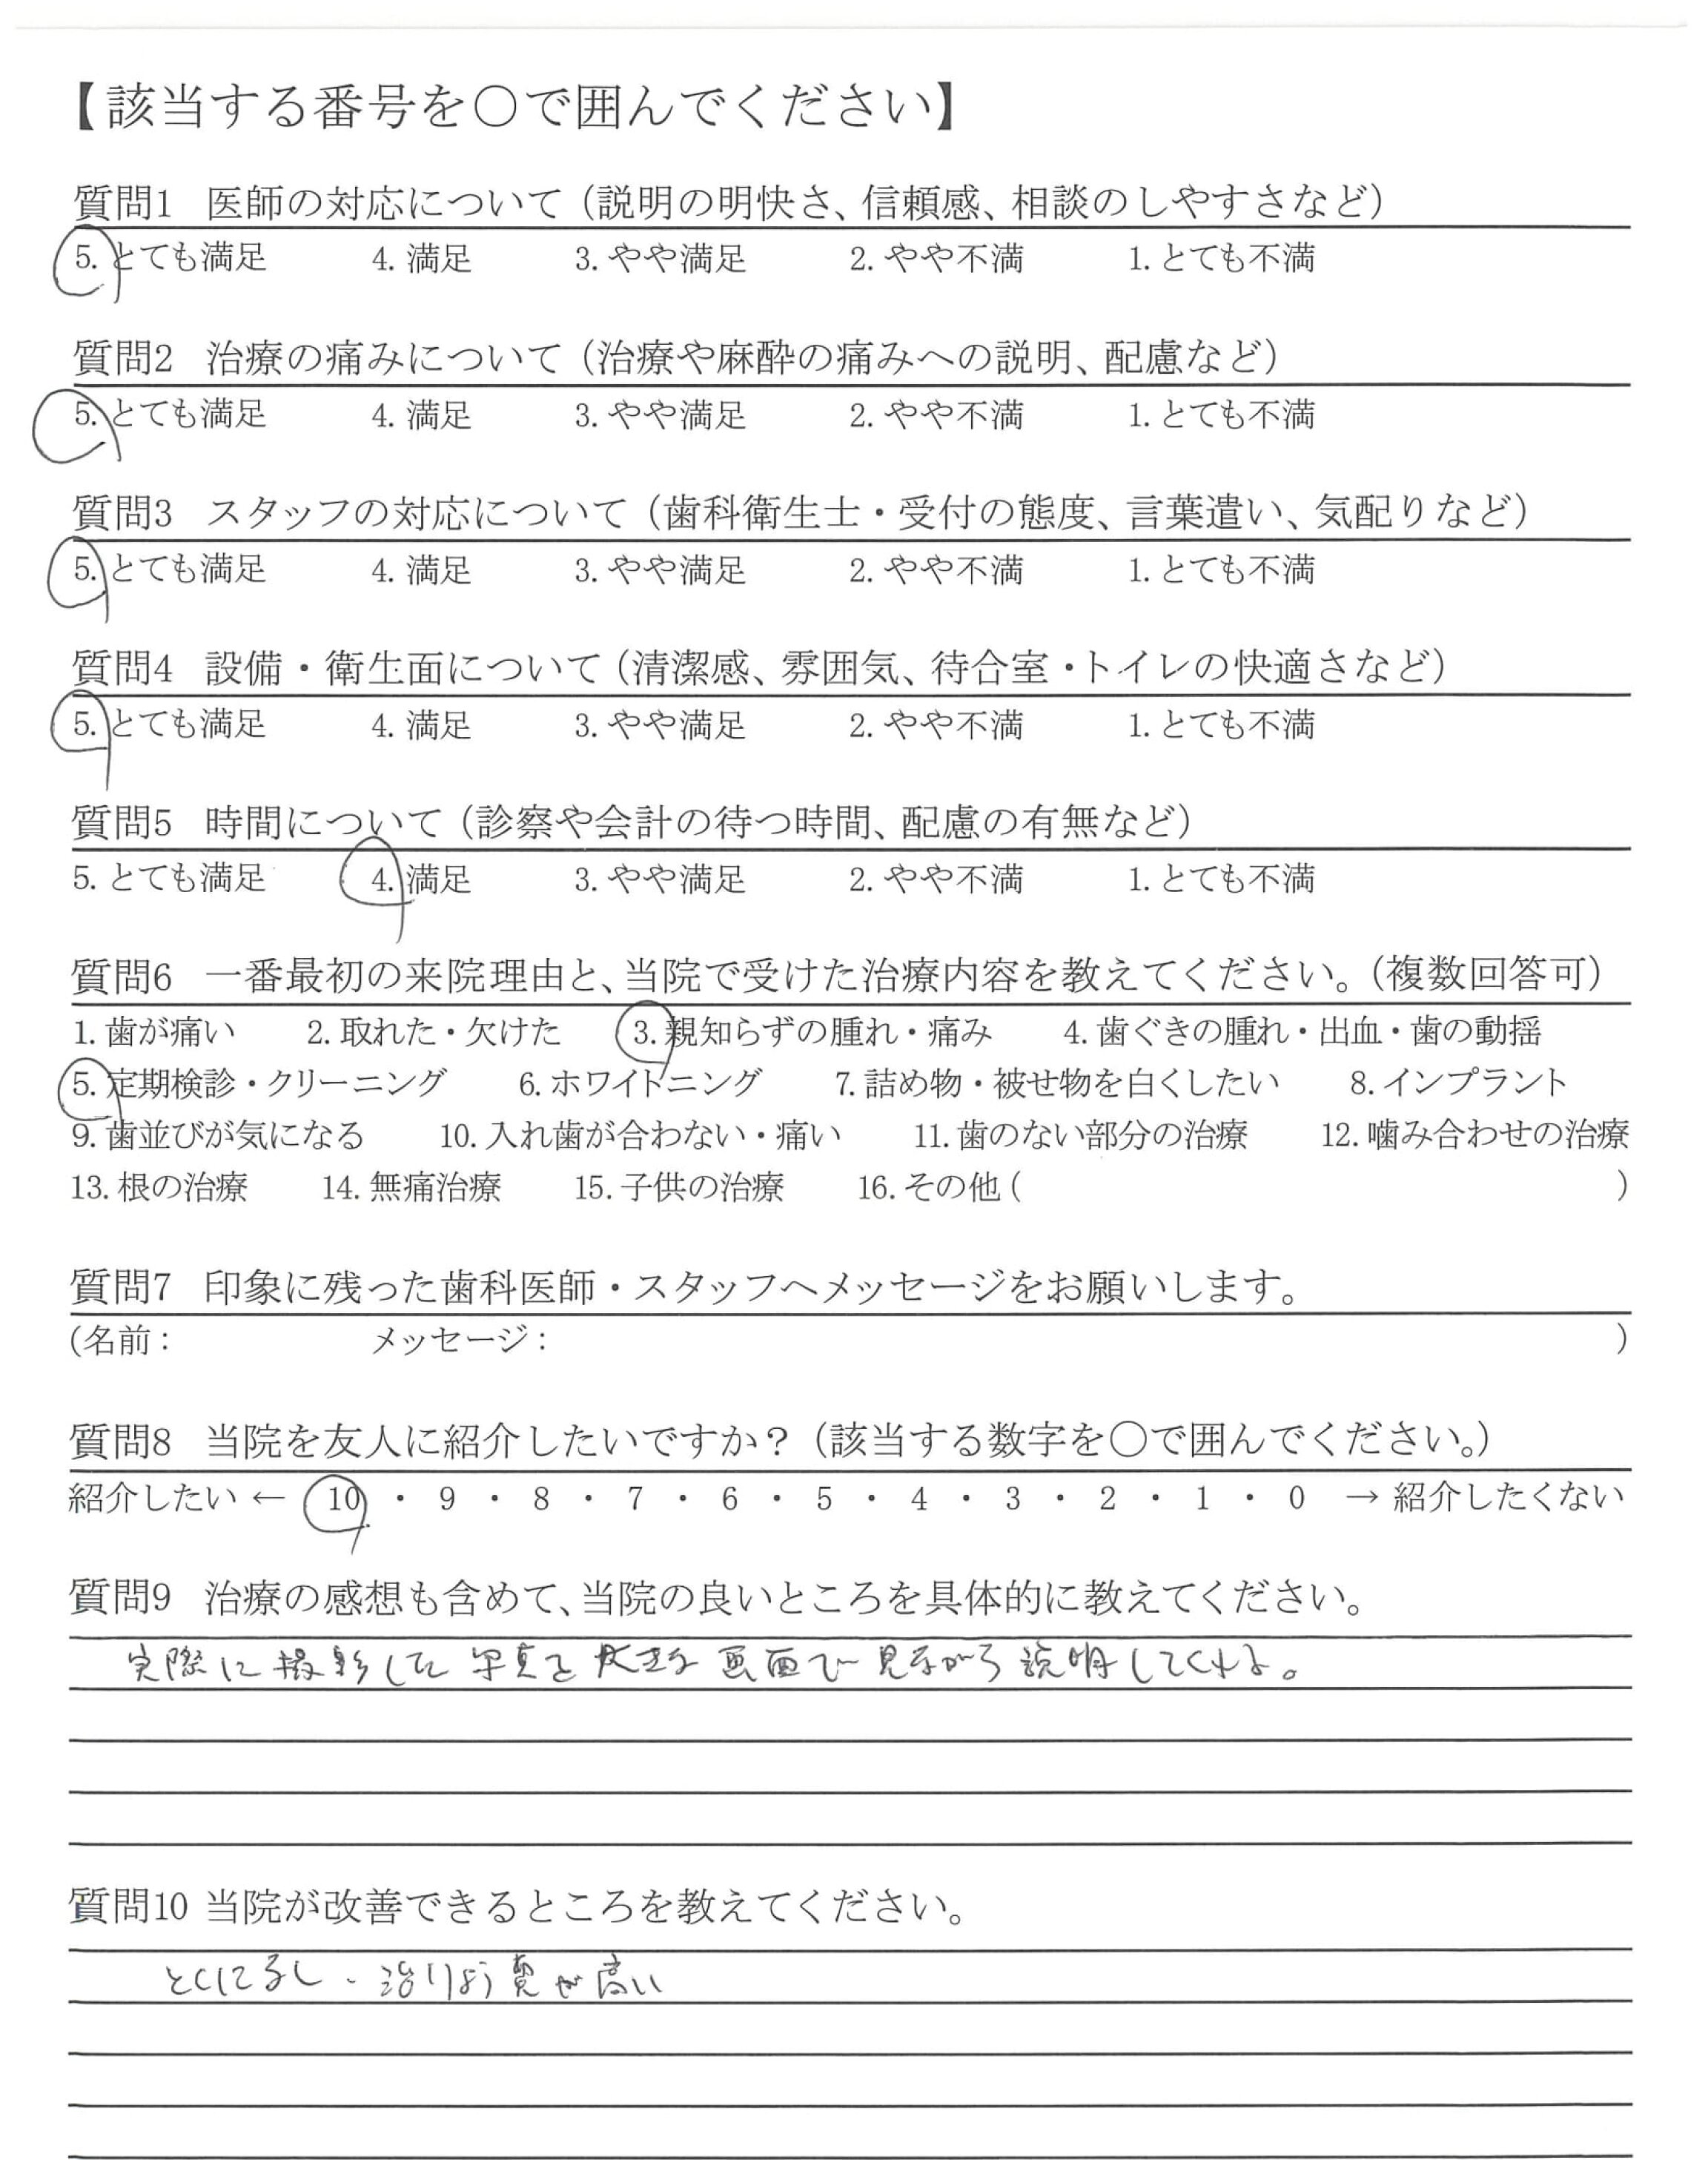 【該当する番号を○で囲んでください】
質問1 医師の対応について（説明の明快さ、信頼感、相談のしやすさなど）
5. とても満足 4. 満足 3. やや満足 2. やや不満 1. とても不満
質問2 治療の痛みについて（治療や麻酔の痛みへの説明、配慮など）
5. とても満足 4. 満足 3. やや満足 2. やや不満 1. とても不満
質問3 スタッフの対応について（歯科衛生士・受付の態度、言葉遣い、気配りなど）
5. とても満足 4. 満足 3. やや満足 2. やや不満 1. とても不満
質問4 設備・衛生面について（清潔感、雰囲気、待合室・トイレの快適さなど）
5. とても満足 4. 満足 3. やや満足 2. やや不満 1. とても不満
質問5 時間について（診察や会計の待つ時間、配慮の有無など）
5. とても満足 4. 満足 3. やや満足 2. やや不満 1. とても不満
質問6 一番最初の来院理由と、当院で受けた治療内容を教えてください。（複数回答可）
1. 歯が痛い 2. 取れた・欠けた 3. 親知らずの腫れ・痛み 4. 歯ぐきの腫れ・出血・歯の動揺
5. 定期検診・クリーニング 6. ホワイトニング 7. 詰め物・被せ物を白くしたい 8. インプラント
9. 歯並びが気になる 10. 入れ歯が合わない・痛い 11. 歯のない部分の治療 12. 噛み合わせの治療
13. 根の治療 14. 無痛治療 15. 子供の治療 16. その他（ ）
質問7 印象に残った歯科医師・スタッフへメッセージをお願いします。
（名前： メッセージ： ）
質問8 当院を友人に紹介したいですか？（該当する数字を○で囲んでください。）
紹介したい ← 10 ・ 9 ・ 8 ・ 7 ・ 6 ・ 5 ・ 4 ・ 3 ・ 2 ・ 1 ・ 0 → 紹介したくない
質問9 治療の感想も含めて、当院の良いところを具体的に教えてください。
実際に撮影した写真を大きな画面で見ながら説明してくれる。
質問10 当院が改善できるところを教えてください。
とくになし、治りょう費が高い